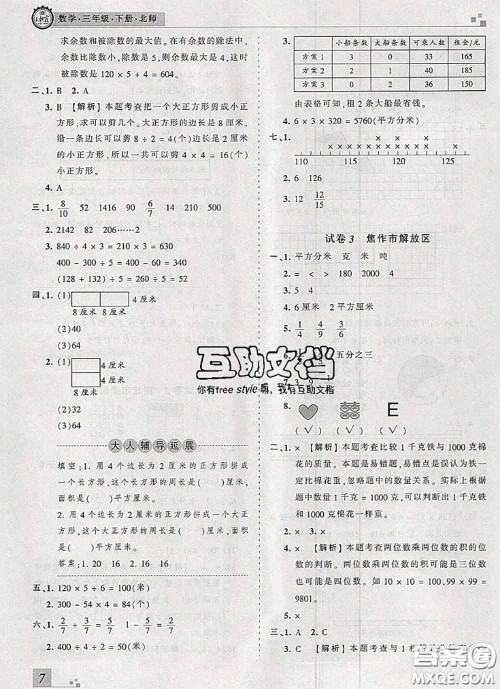 数学·三年级·下册·北师
求余数和被除数的最大值。在有余数的除法中,
余数比除数小,除数是5,则余数最大是4,这时
被除数是 120×5+4=604。
二、1. B  2. A
3. B 【解析】本题考查把一个大正方形剪成小正
方形,求可以剪几个。大正方形的边长是8厘米,
沿一条边长可以剪 8÷2=4(个)边长是2厘米
的小正方形,所以一共可以剪 4×4=16(个)
小正方形。
4. A
三、1. 8/10  52  1416  90  6/7  14  210  4/7
2. 2142  82  206……2
3. 840÷(42÷6)=120
400-300÷5=400-60=340
(128+132)÷5=260÷5=52
四、1. (1) 4厘米
8厘米 8厘米
(2)40
(3)64
2. (1) 4厘米
8厘米
(2)32
(3)64
大人辅导延展
填空:1. 用4个边长为2厘米的正方形拼成
一个长方形,这个长方形的周长是(  )厘米,
面积是(  )平方厘米。
2. 用4个边长为2厘米的正方形拼成一个大正
方形,这个大正方形的周长是(  )厘米,面积
是(  )平方厘米。
答案:1. 20  16  2. 16  16
五、1. 120×5÷6=100(米)
2. 300-54×4=84(米)
六、1. 2/7+3/7=5/7  1-5/7=2/7
2. 400÷4÷2=50(千米)
7
3.
小船条数 大船条数 可乘人数 租金/元
方案1 3 0 33 165
方案2 1 2 40 185
方案3 2 1 36 150
由表格可知,租2条大船最省钱。
4. 6×3×320=5760(平方米)
七、1.
110 120 130 140 150 160
2. 31
3. 12  12/15
试卷3 焦作市解放区
一、1. 平方分米 克 米 吨
2. = < > 180 2000 4
3. 65
4. 6厘米 2平方厘米
5. 1/4  4/9  3/6
五分之三
8.
E
(√) (√) (√)
二、1. × 【解析】本题考查比较1千克铁与1000克棉
花的质量。本题是易错题,易错点是误认为铁一定
比棉花重,忽略题中的数量关系。实际上,根据
题中数量1千克=1000克,可以判断出1千克铁
和1000克棉花一样重。
2. √
3. ×
4. × 【解析】本题考查两位数乘两位数的积的位
数的判断。两位数乘两位数的积可能是三位数,
也可能是四位数。如 10×10=100,99×99=
9801。
5. ×
三、1. C 【解析】本题考查与1
互助文档
你有free style吗,我有互助文档
答案圈
MXQE.COM